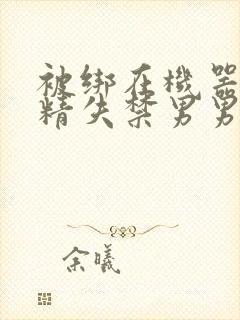 被绑在機器
精失禁男男
余曦